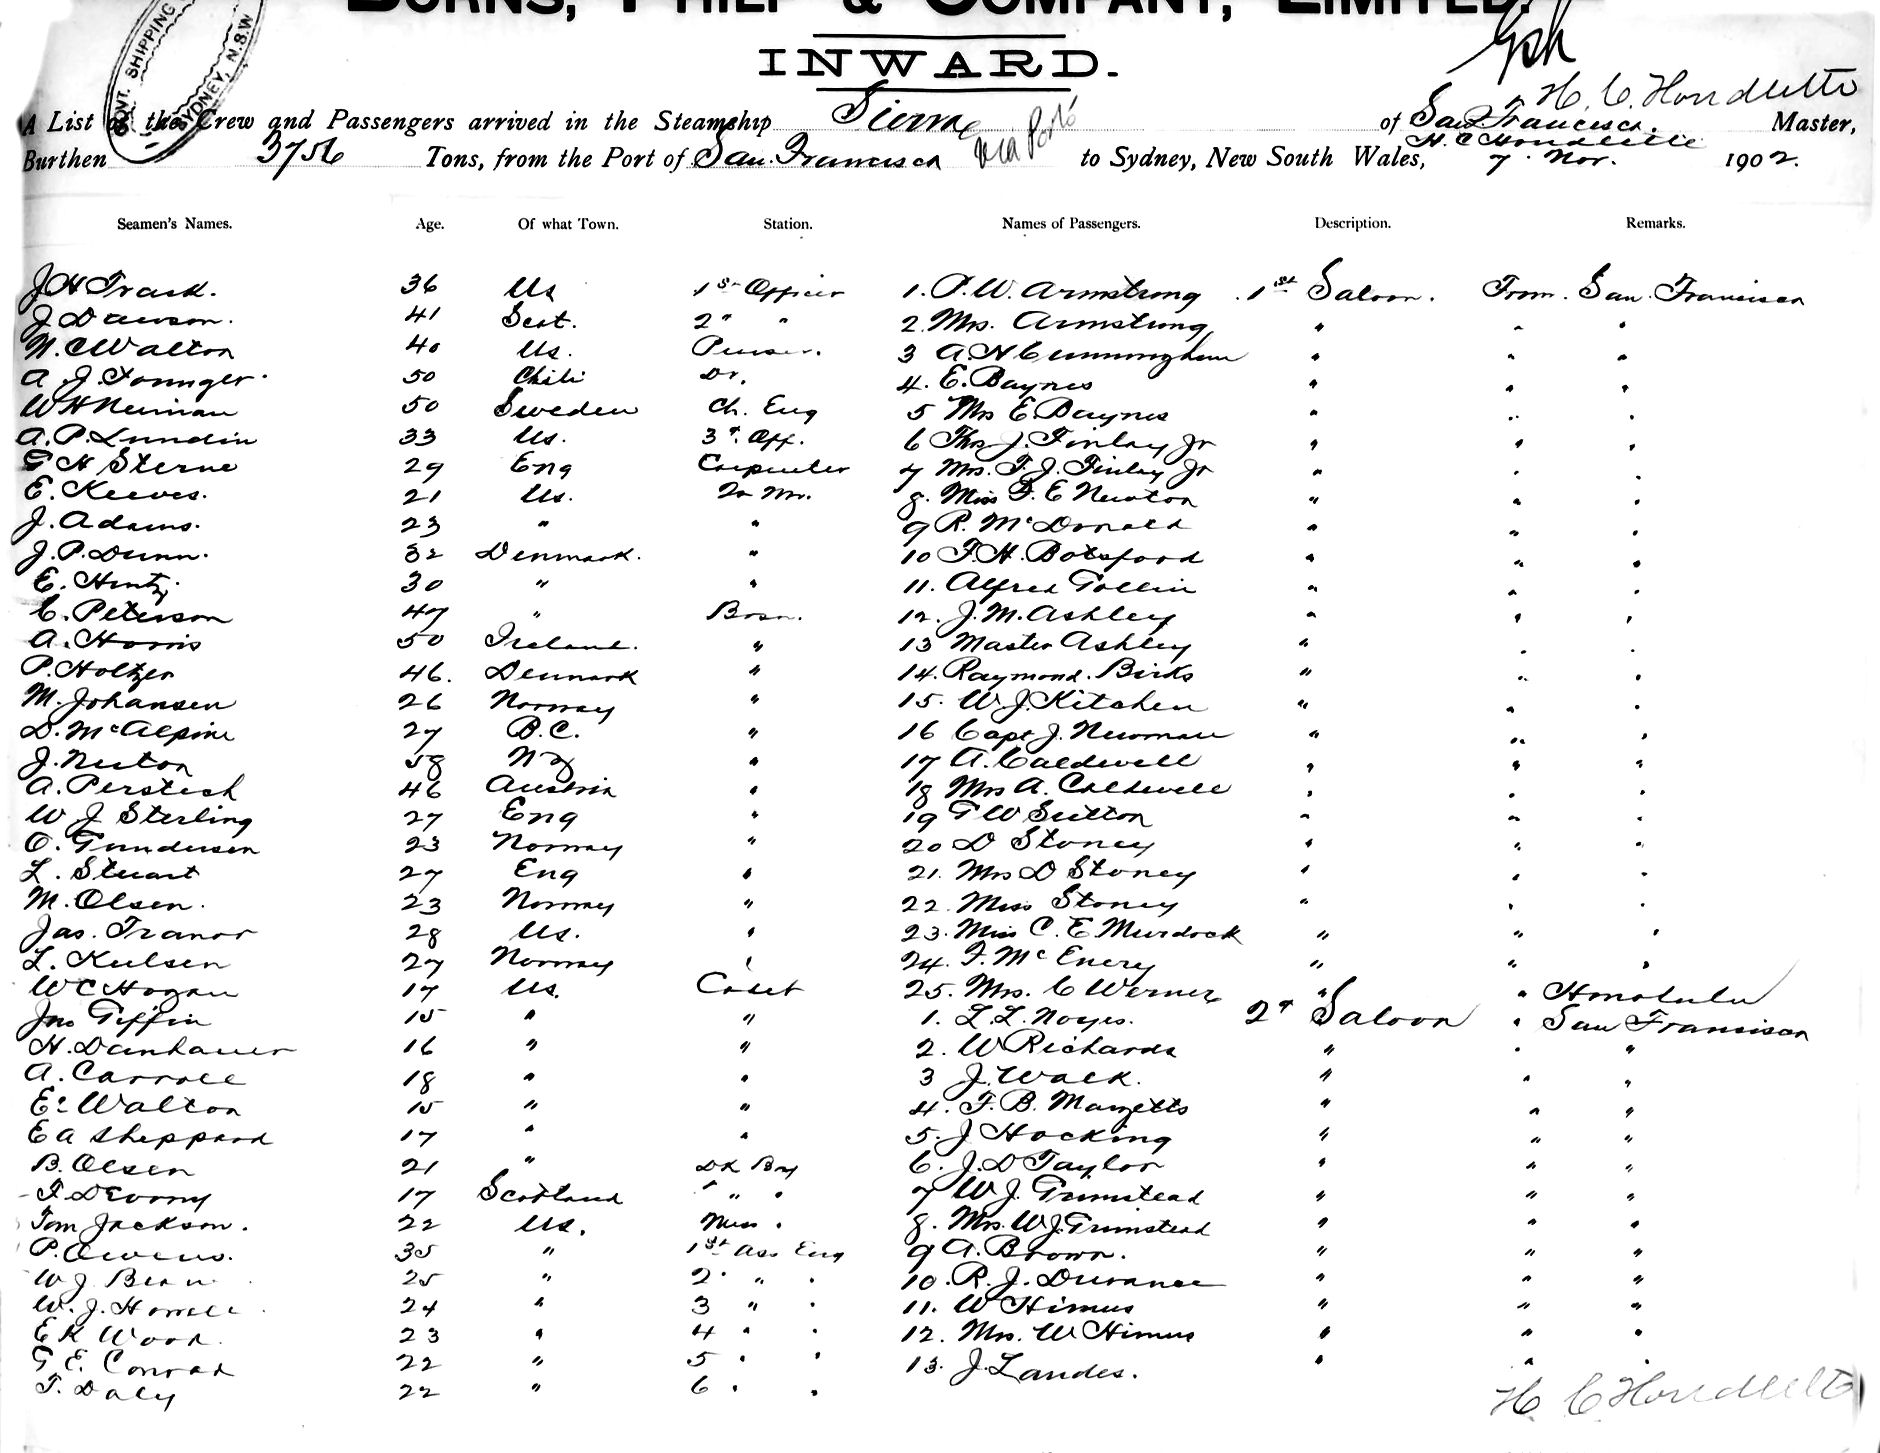 BURNS, PHILP & COMPANY, LIMITED.
INWARD.
GOVT. SHIPPING SYDNEY, N.S.W
H. C. Houdlette
A List of the Crew and Passengers arrived in the Steamship Sierra of San Francisco. Master,
H. C. Houdlette
Burthen 3756 Tons, from the Port of San. Francisco via Ports to Sydney, New South Wales, 7. Nov. 1902.
Seamen's Names. Age. Of what Town. Station. Names of Passengers. Description. Remarks.
J H Trask. 36 Us 1st Officer 1. P. W. Armstrong 1st Saloon. From. San. Francisco
J Dawson. 41 Scot. 2 " " 2. Mrs. Armstrong " " "
N. C Walton 40 Us. Purser. 3 A. H Cunningham " " "
A. J. Younger. 50 Chili Dr. 4. E. Baynes " " "
W H Neuman 50 Sweden Ch. Eng 5 Mrs E. Baynes " " "
A. P. Lundin 33 Us. 3r. Off. 6 Thos J. Finlay Jr " " "
G H Sterne 29 Eng Carpenter 7 Mrs. T. J. Finlay Jr " " "
E. Keeves. 21 Us. 8. Miss F. E Newton " " "
J. Adams. 23 " " 9 R. McDonald " " "
J. P. Dunn. 32 Denmark. " 10 F. H. Botsford " " "
E. Hintz. 30 " " 11. Alfred Gollin " " "
C. Peterson 47 " Bosn. 12. J. M. Ashley " " "
A. Harris 50 Ireland. " 13 Master Ashley " " "
P. Holtzer 46. Denmark " 14. Raymond. Birks " " "
M. Johansen 26 Norway " 15. W. J. Kitchen " " "
D. McAlpine 27 B.C. " 16 Capt J. Newman " " "
J. Neston 58 NZ " 17 A. Caldwell " " "
A. Perstich 46 Austria " 18 Mrs A. Caldwell " " "
W J Sterling 27 Eng " 19 G W Sutton " " "
O. Gundersen 23 Norway " 20 D Stoney " " "
L. Stuart 27 Eng " 21. Mrs D Stoney " " "
M. Olsen. 23 Norway " 22. Miss Stoney " " "
Jas. Tranor 28 Us. " 23. Miss C. E. Murdock " " "
L. Keelsen 27 Norway " 24. F. McEnery " " "
W C Hogan 17 Us. Cadet 25. Mrs. C Werner " " Honolulu
Jno Giffin 15 " " 1. L. L. Noyes. 2d Saloon " San Francisco
H. Danhauer 16 " " 2. W Richards " " "
A. Carroll 18 " " 3 J. Walk. " " "
E. Walton 15 " " 4. F. B. Mayetts " " "
E A Sheppard 17 " " 5. J Hocking " " "
B. Olsen 21 " Dk Boy 6. J. D Taylor " " "
F. Devorny 17 Scotland " " " 7 W. J. Grimstead " " "
Tom Jackson. 22 Us. Mess " 8. Mrs. W. J. Grimstead " " "
P. Owens. 35 " 1st Ass Eng 9 A. Brown. " " "
W J Bean 25 " 2 " " 10. R. J. Durance " " "
W. J. Howell 24 " 3 " " 11. W Himus " " "
E K Wood. 23 " 4 " " 12. Mrs. W Himus " " "
G E. Conrad 22 " 5 " " 13. J. Landes. " " "
T. Daly 22 " 6 " "
H. C. Houdlette